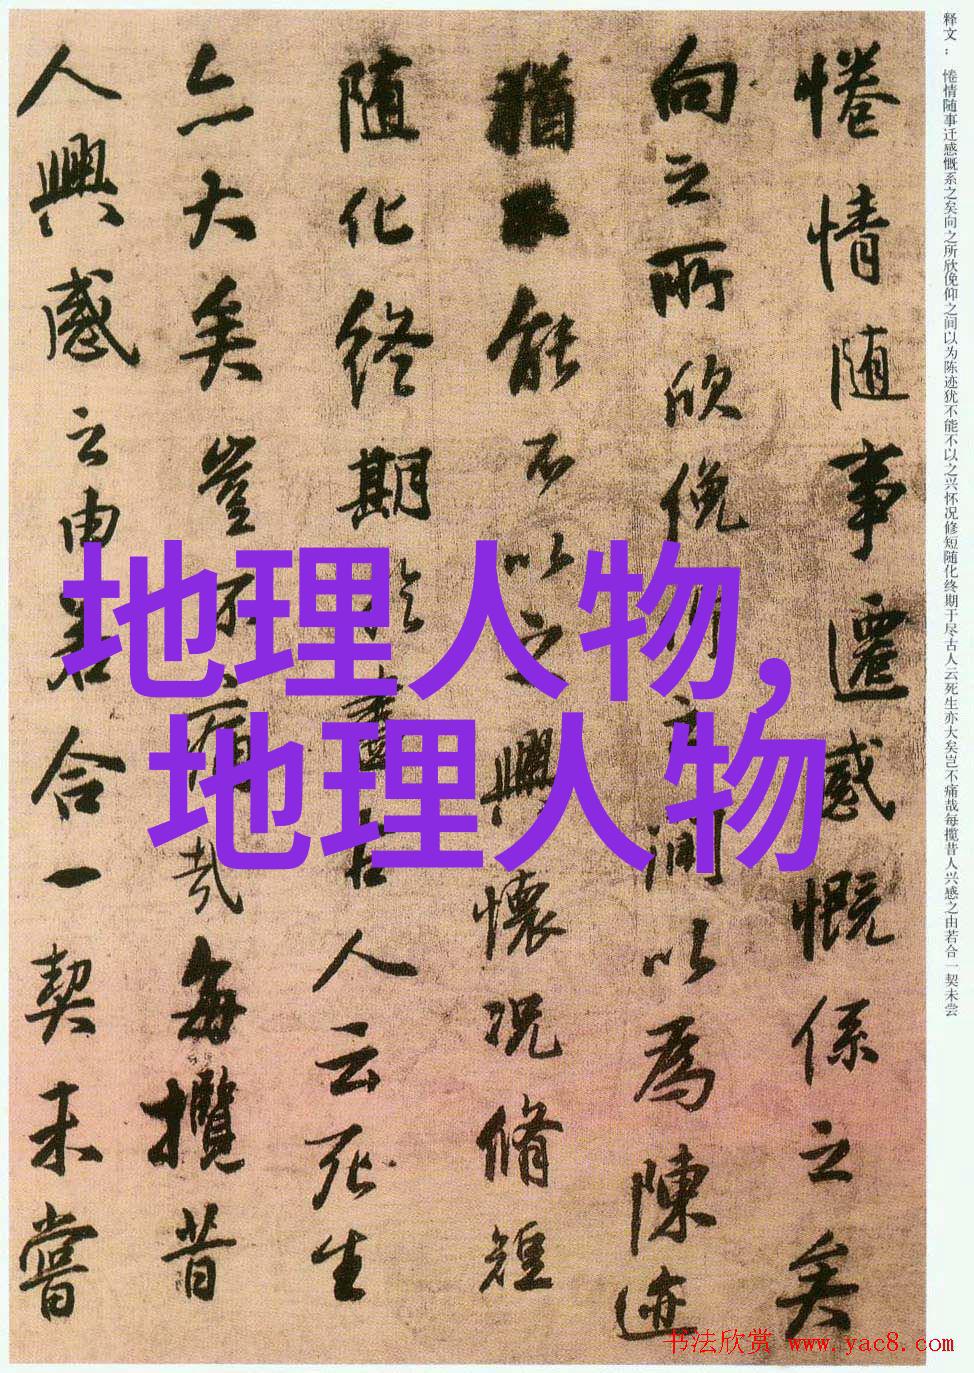 释文：惓情随事迁感慨系之矣向之所欣俛仰之间以为陈迹犹不能不以之兴怀况修短随化终期于尽古人云死生亦大矣岂不痛哉每揽昔人兴感之由若合一契未尝
惓情随事遷感慨係之矣
向之所欣俛仰之間以為陳迹
猶不能不以之興懷況脩短
随化終期於盡古人云死生
亦大矣豈不痛哉每攬昔
人興感之由若合一契未嘗
地理人物,
地理人物
书法欣赏 www.yac8.com